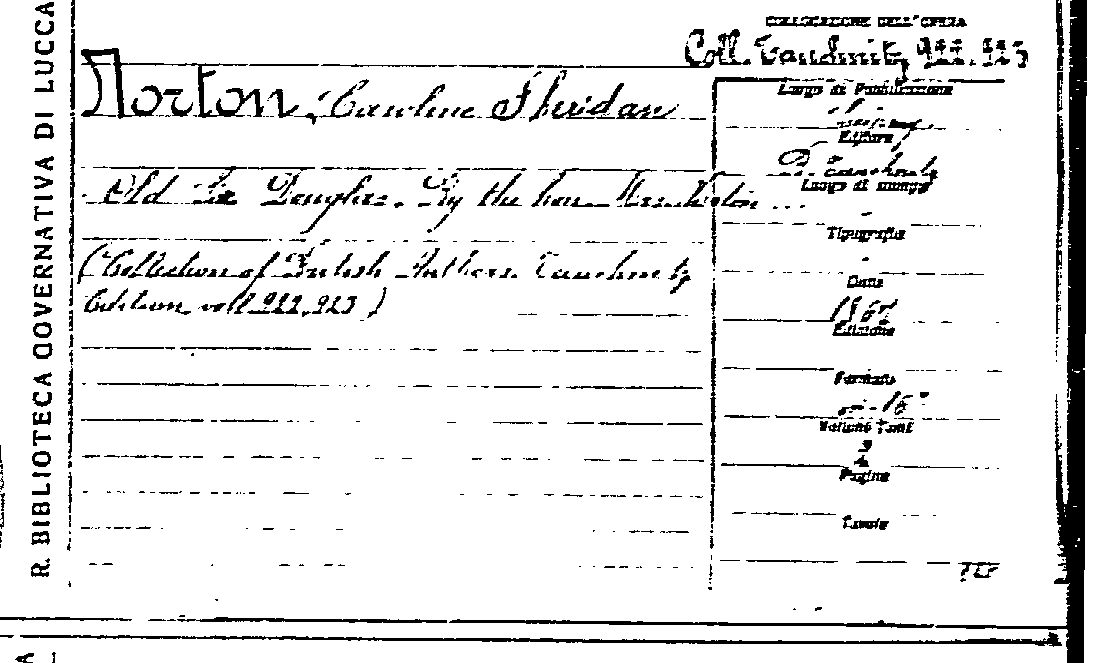 R. BIBLIOTECA GOVERNATIVA DI LUCCA
COLLOCAZIONE DELL'OPERA
Coll. Tauchnitz 922.923
Norton, Caroline Sheridan
Old Sir Douglas. By the hon. Mrs. Norton ...
(Collection of British Authors. Tauchnitz
Edition, vol. 922.923)
Luogo di Pubblicazione
Leipzig
Editore
B. Tauchnitz
Luogo di stampa
-
Tipografia
-
Data
1867
Edizione
Formato
in-16°
Volume Tomi
2
Pagine
Tavole